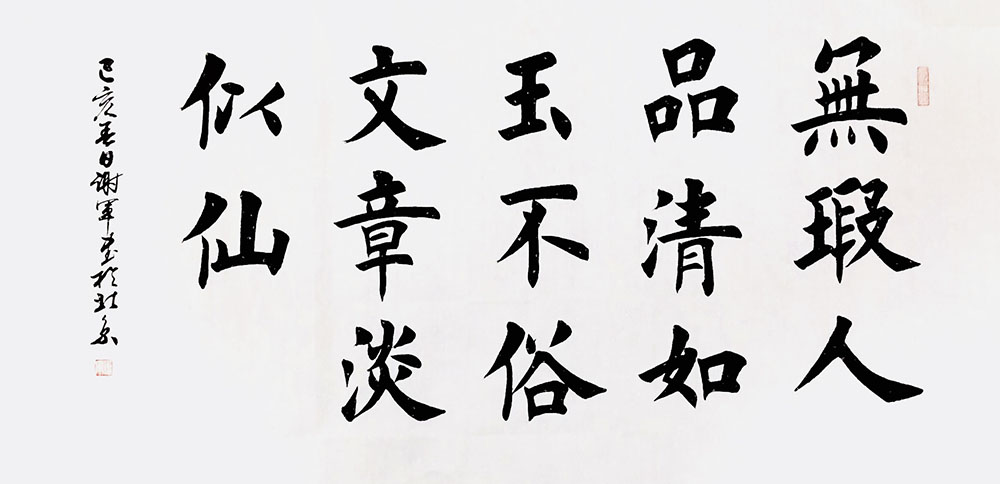 無瑕人
品清如
玉不俗
文章淡
似仙
己亥春日謝軍書於北京